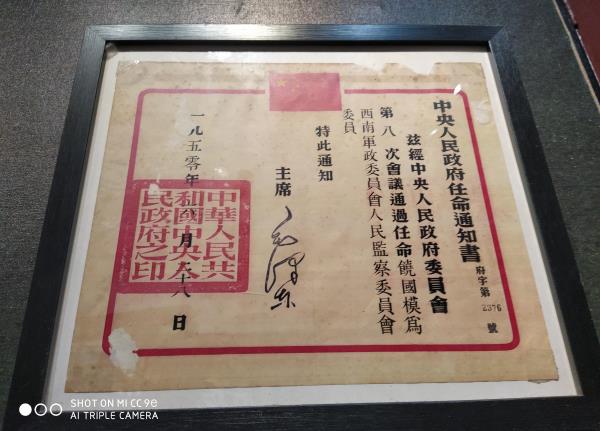 中央人民政府任命通知書
府字第2376號
茲經中央人民政府委員會
第八次會議通過任命饒國模爲
西南軍政委員會人民監察委員會
委員
特此通知
主席
毛澤東
一九五零年 月二十八日
中華人民共
和國中央人
民政府之印
SHOT ON MI CC9e
AI TRIPLE CAMERA